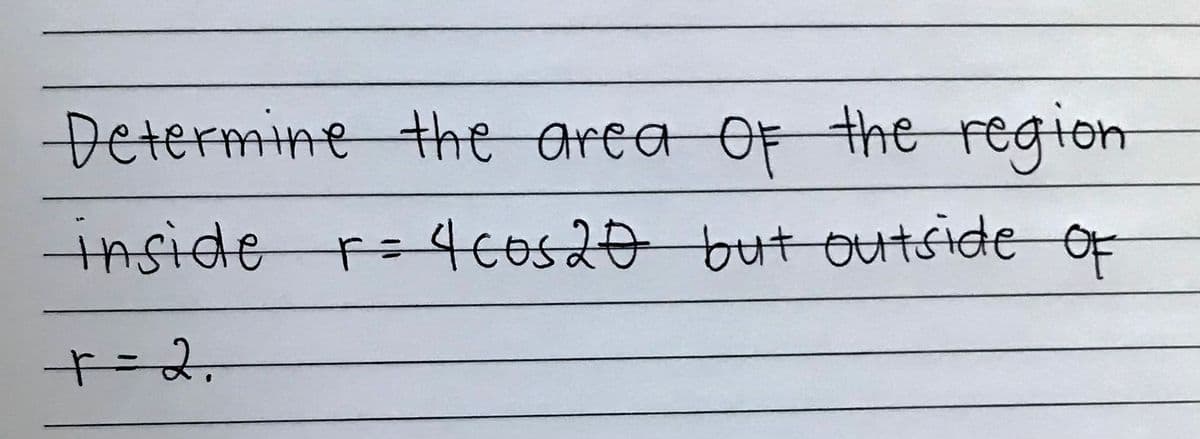 Determine the area OF the region
inside r = 4cos2θ but outside OF
r = 2.